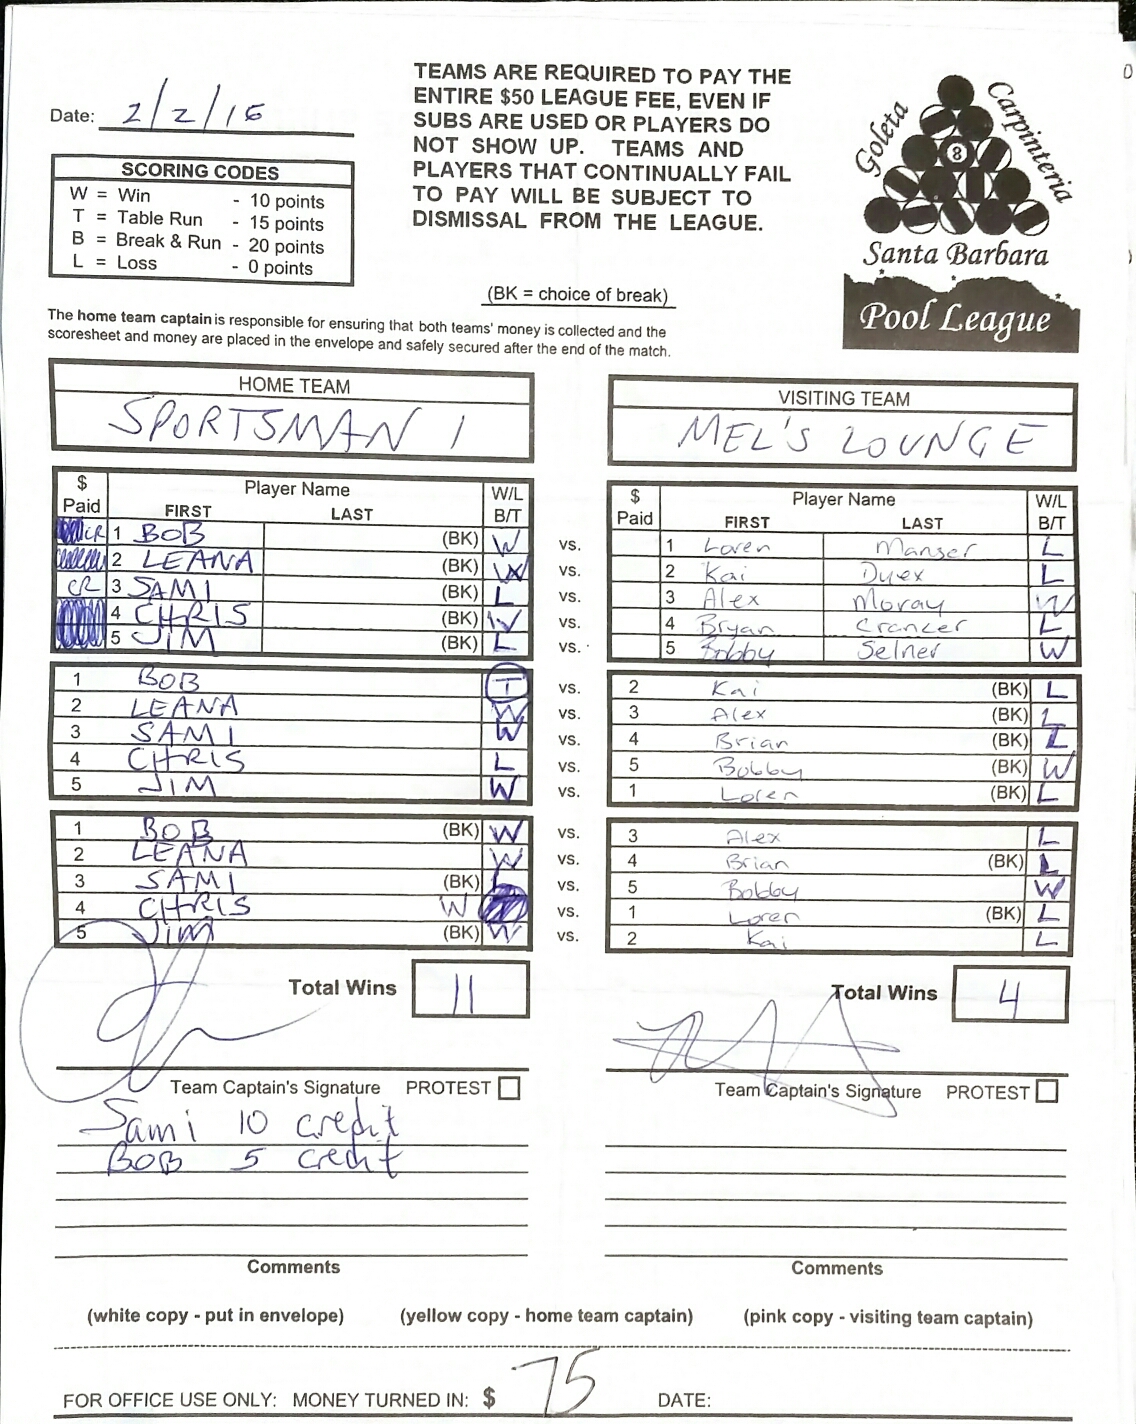 TEAMS ARE REQUIRED TO PAY THE
ENTIRE $50 LEAGUE FEE, EVEN IF
SUBS ARE USED OR PLAYERS DO
NOT SHOW UP. TEAMS AND
PLAYERS THAT CONTINUALLY FAIL
TO PAY WILL BE SUBJECT TO
DISMISSAL FROM THE LEAGUE.
Date: 2/2/16
SCORING CODES
W = Win - 10 points
T = Table Run - 15 points
B = Break & Run - 20 points
L = Loss - 0 points
Goleta
Carpinteria
8
Santa Barbara
Pool League
(BK = choice of break)
The home team captain is responsible for ensuring that both teams' money is collected and the
scoresheet and money are placed in the envelope and safely secured after the end of the match.
HOME TEAM
SPORTSMAN 1
VISITING TEAM
MEL'S LOUNGE
$ Paid Player Name FIRST LAST W/L B/T
$ Paid Player Name FIRST LAST W/L B/T
CR 1 BOB (BK) W vs. 1 Loren Manser L
2 LEANA (BK) W vs. 2 Kai Dyex L
CR 3 SAMI (BK) L vs. 3 Alex Moray W
4 CHRIS (BK) W vs. 4 Bryan L
5 JIM (BK) L vs. 5 Bobby Selner W
1 BOB T vs. 2 Kai (BK) L
2 LEANA W vs. 3 Alex (BK) L
3 SAMI W vs. 4 Brian (BK) L
4 CHRIS L vs. 5 Bobby (BK) W
5 JIM W vs. 1 Loren (BK) L
1 BOB (BK) W vs. 3 Alex L
2 LEANA W vs. 4 Brian (BK) L
3 SAMI (BK) L vs. 5 Bobby W
4 CHRIS W vs. 1 Loren (BK) L
5 JIM (BK) W vs. 2 Kai L
Total Wins 11
Total Wins 4
Team Captain's Signature PROTEST
Team Captain's Signature PROTEST
Sami 10 credit
BOB 5 credit
Comments
Comments
(white copy - put in envelope) (yellow copy - home team captain) (pink copy - visiting team captain)
FOR OFFICE USE ONLY: MONEY TURNED IN: $ 75 DATE: